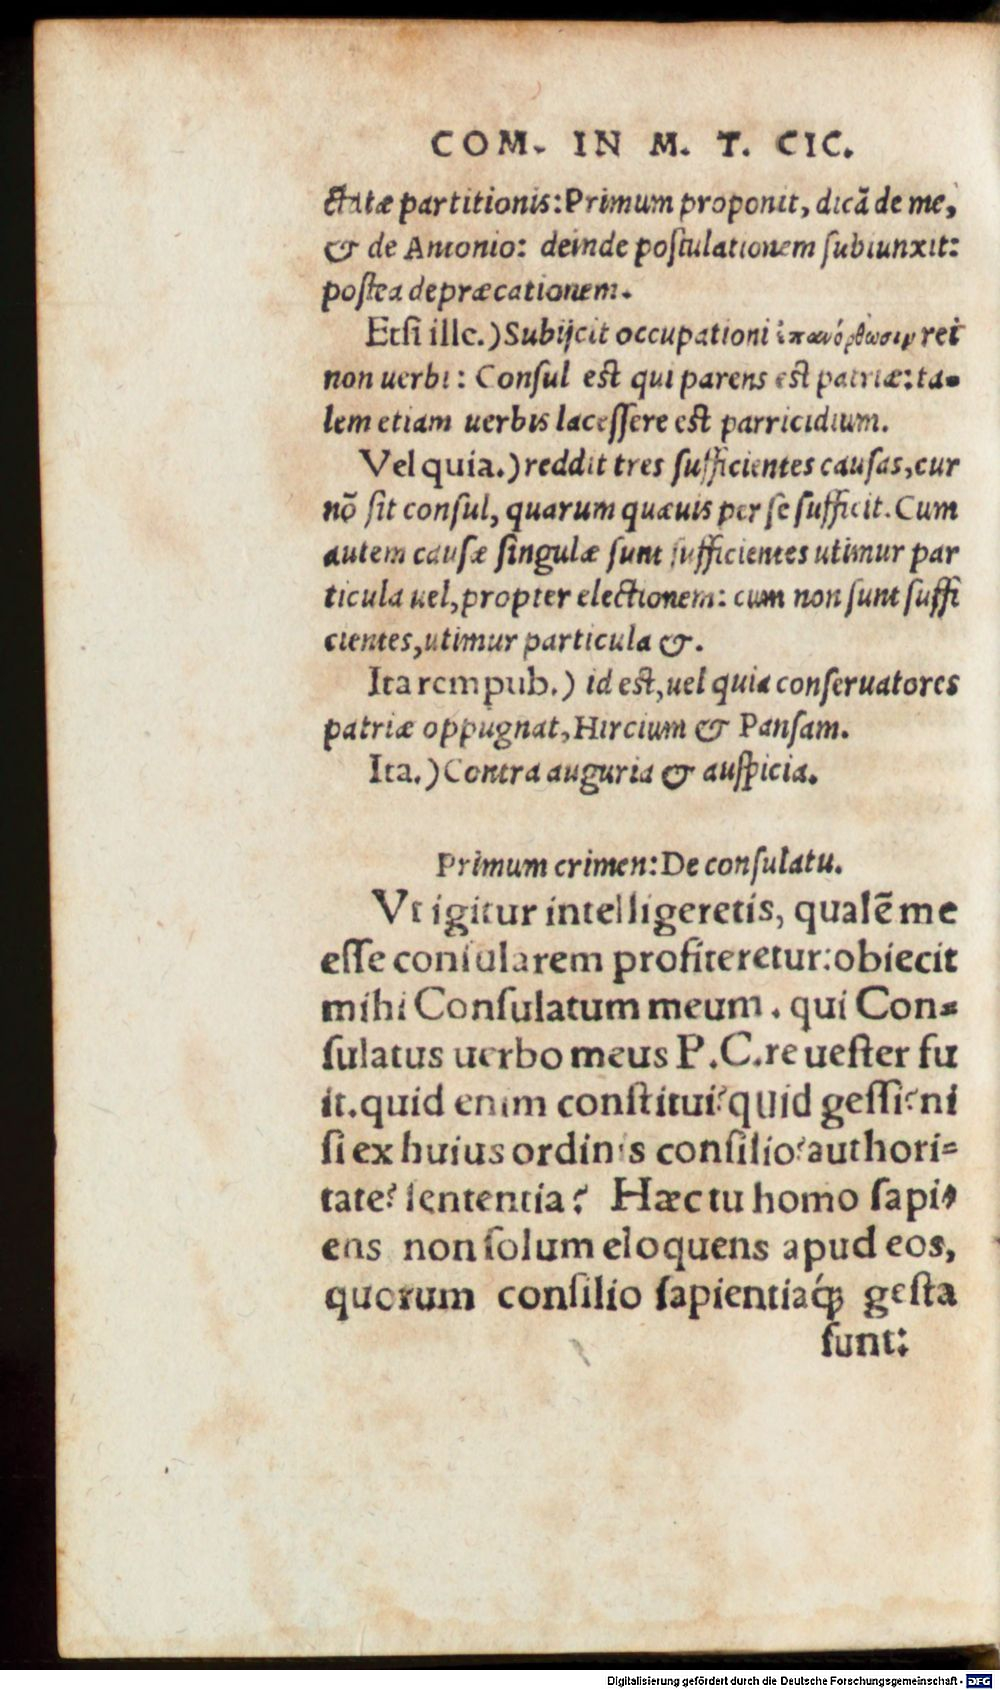 COM. IN M. T. CIC.
ctatæ partitionis: Primum proponit, dicã de me,
& de Antonio: deinde poſtulationem ſubiunxit:
poſtea depræcationem.
Etſi ille.) Subijcit occupationi ἐπανόρθωσιν rei
non uerbi: Conſul eſt qui parens eſt patriæ: ta-
lem etiam uerbis laceſſere eſt parricidium.
Vel quia.) reddit tres ſufficientes cauſas, cur
nõ ſit conſul, quarum quæuis per ſe ſufficit. Cum
autem cauſæ ſingulæ ſunt ſufficientes utimur par
ticula uel, propter electionem: cum non ſunt ſuffi
cientes, utimur particula &.
Ita rempub.) id eſt, uel quia conſeruatores
patriæ oppugnat, Hircium & Panſam.
Ita.) Contra auguria & auſpicia.
Primum crimen: De conſulatu.
Vt igitur intelligeretis, qualẽ me
eſſe conſularem profiteretur: obiecit
mihi Conſulatum meum. qui Con-
ſulatus uerbo meus P. C. re ueſter fu
it. quid enim conſtitui? quid geſſi? ni
ſi ex huius ordinis conſilio? authori-
tate? ſententia? Hæc tu homo ſapi-
ens non ſolum eloquens apud eos,
quorum conſilio ſapientiaq́; geſta
ſunt:
Digitalisierung gefördert durch die Deutsche Forschungsgemeinschaft - DFG